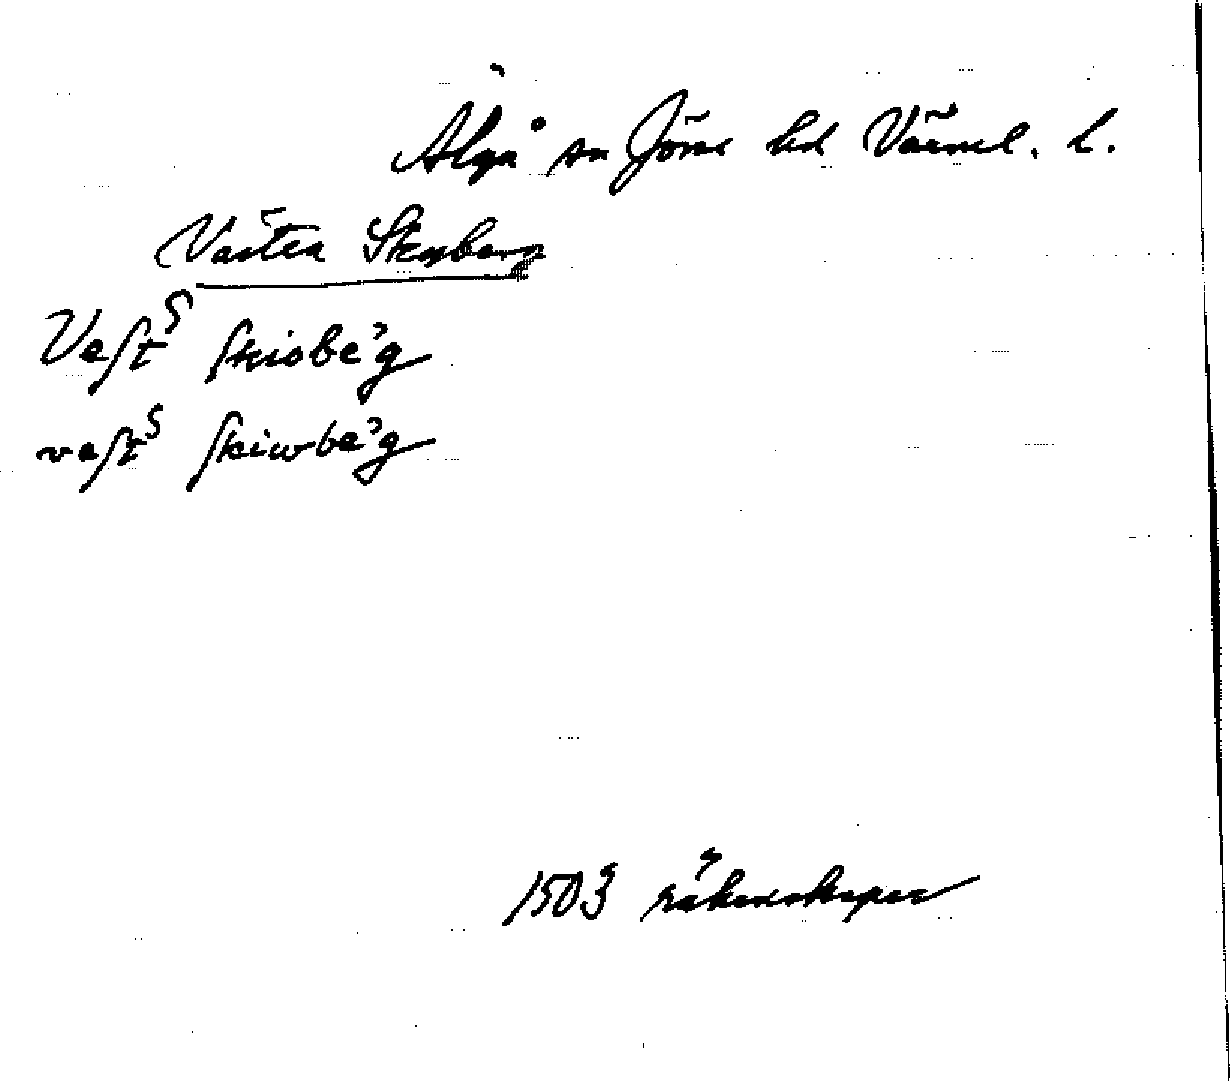 Älgå sn Jösse hd Värml. l.
Västra Skyberg
Vesſt skiobe'g
vesſt skiwbe'g
1503 räkenskaper